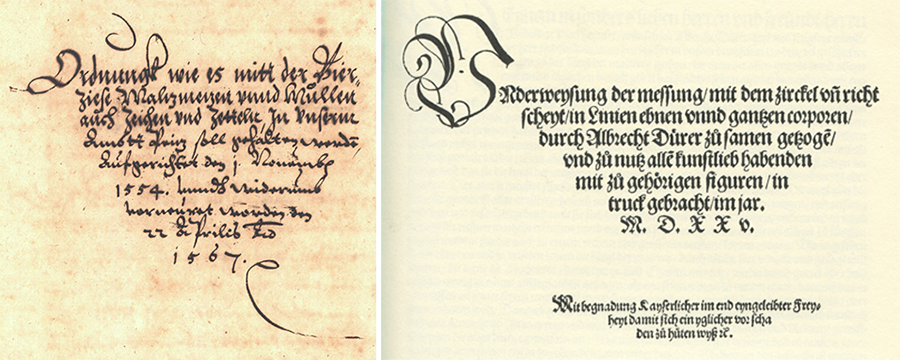 Ordnungk wie es mitt der Bier-
ziese Maltzmetzen vnnd Mullen
auch Zeichen vnd Zetteln Jn vnserm
Ambtt Peitz soll gehalten werdñ
Aufgerichtet den 1. Novemb
1554. vnndt widerumb
vorneuret worden den
22 Aprilis Año
1567.
VNderweysung der messung/mit dem zirckel vñ richt
scheyt/in Linien ebnen vnnd gantzen corporen/
durch Albrecht Dürer zů samen getzogẽ/
vnd zů nutz allẽ kunstlieb habenden
mit zů gehörigen figuren/in
truck gebracht/im jar.
M. D. X X v.
Mit begnadung Kayserlicher im end eyngeleibter Frey-
heyt damit sich ein yglicher vor scha
den zů hüten wyß ꝛc.